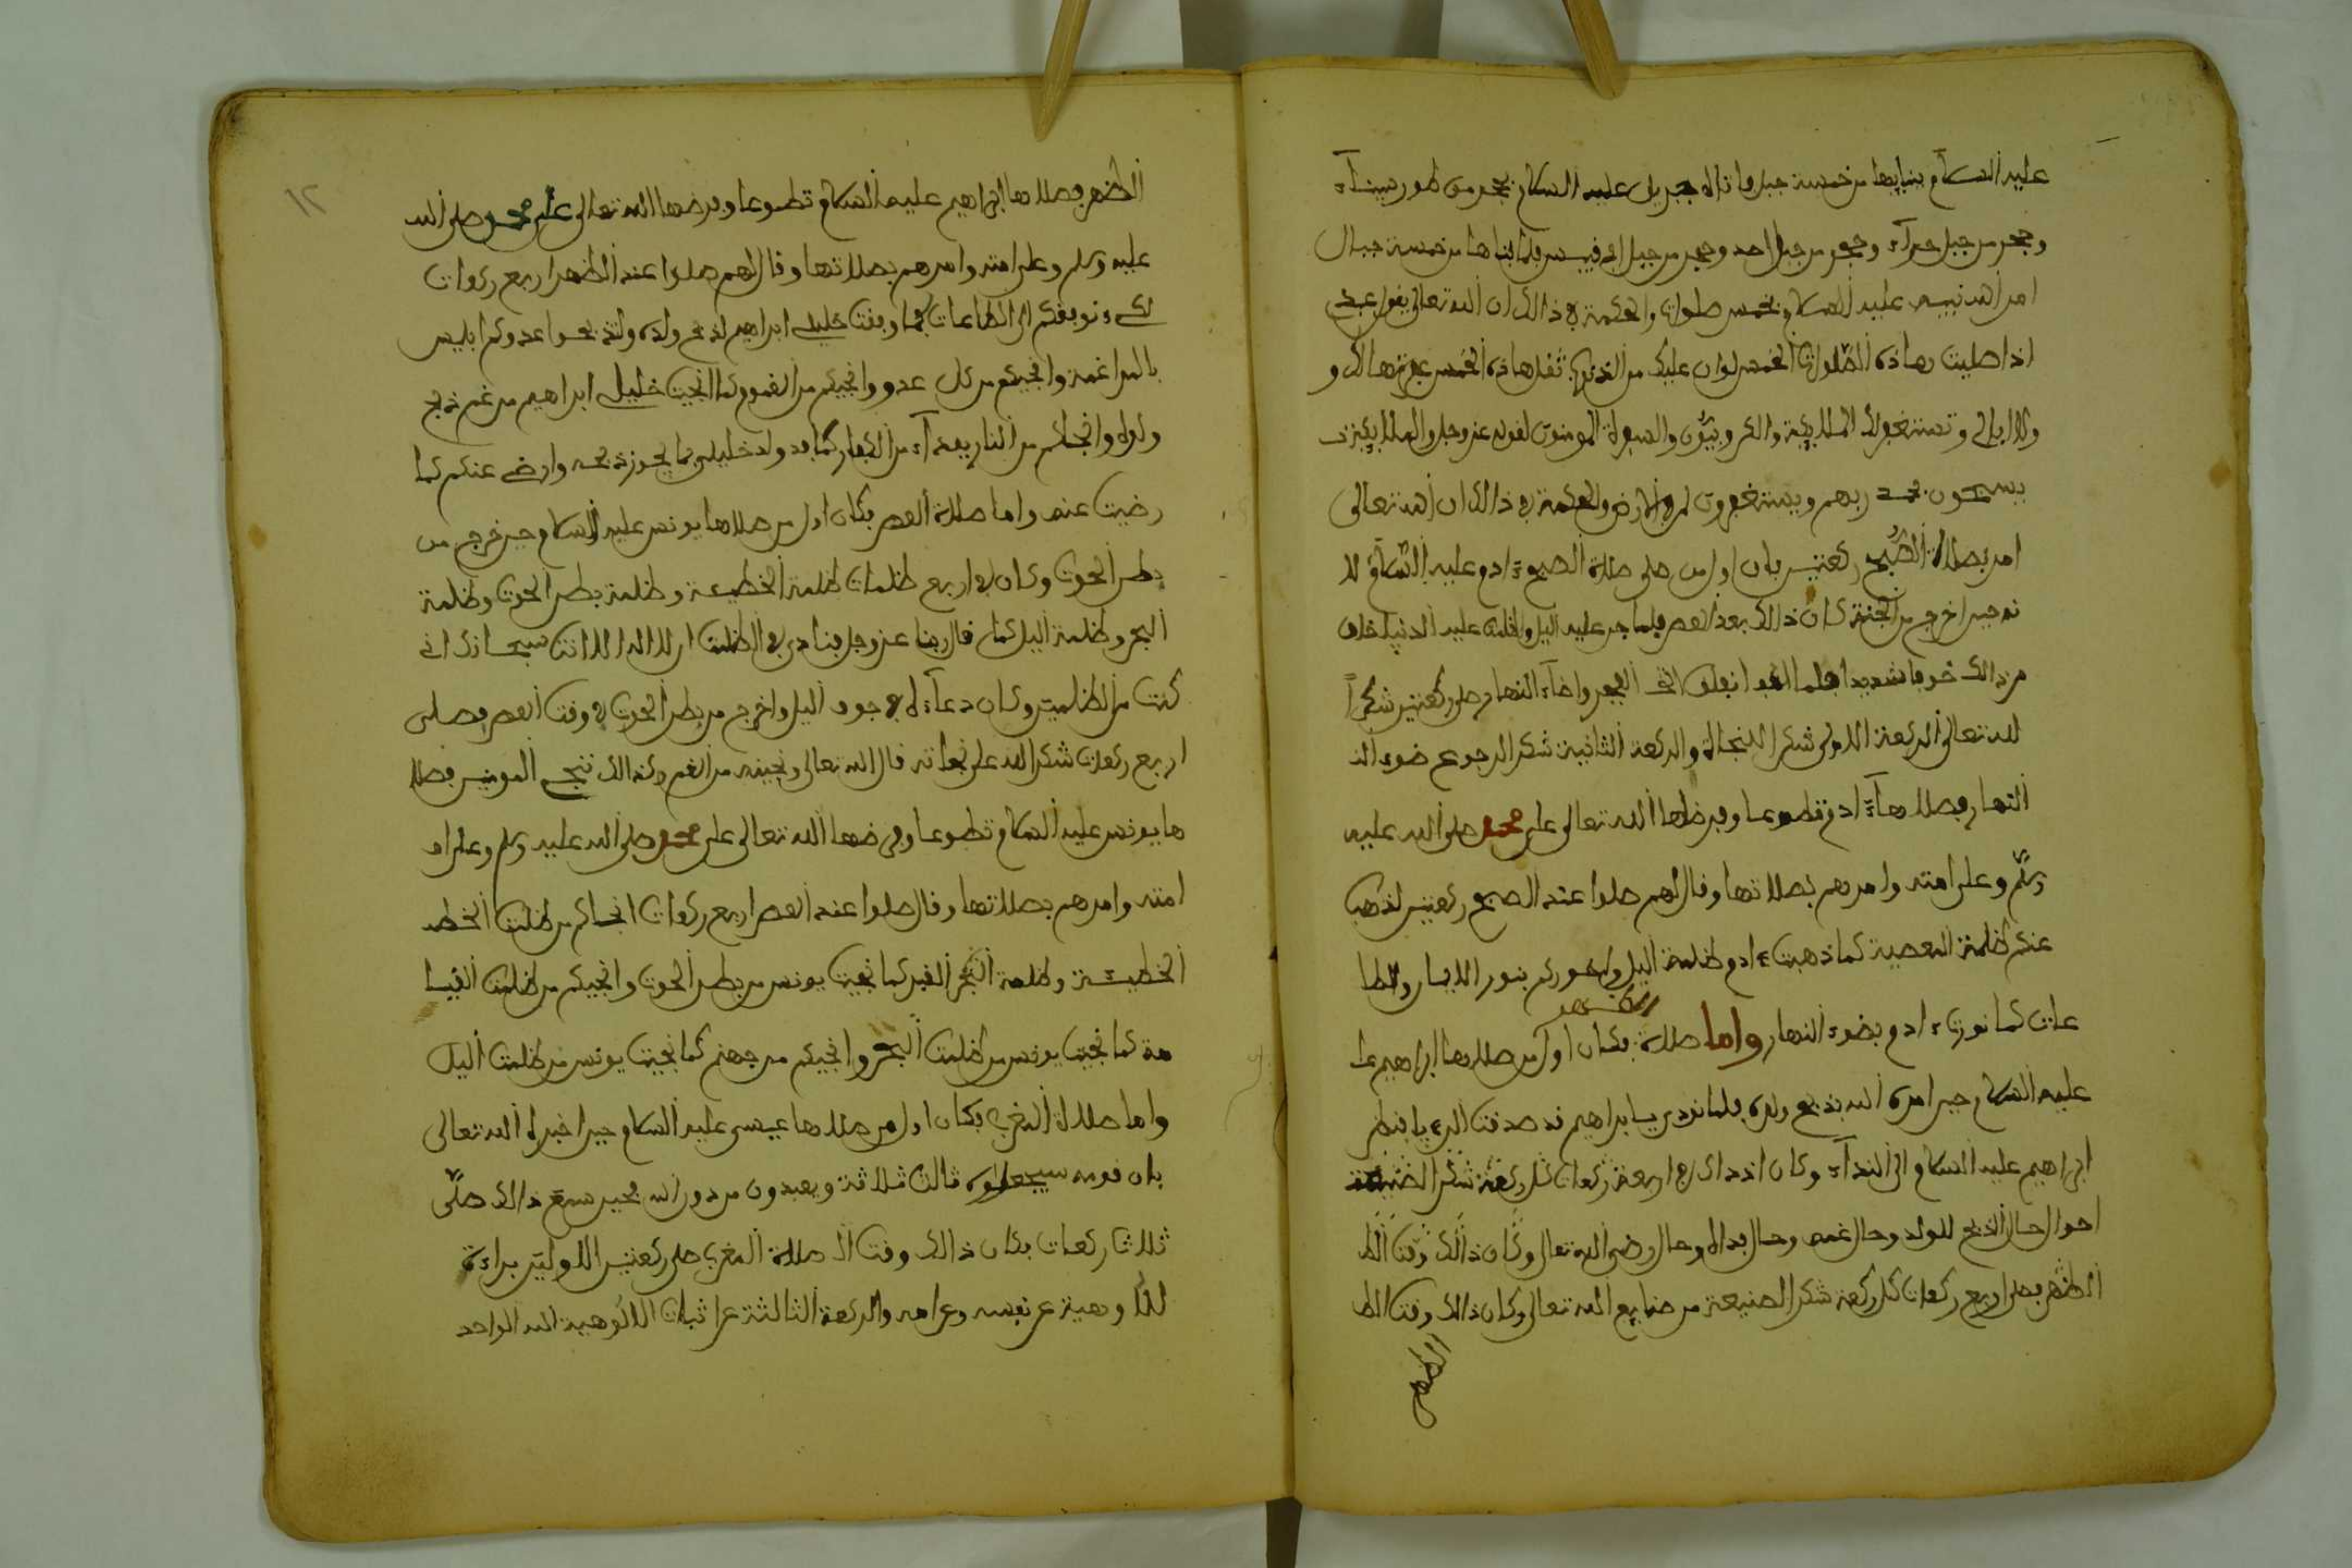 عليه السلام ببنايها من خمسة جبل فاتاه جبريل عليه السلام بحجر من طور سيناء
وحجر من جبل حراء وحجر من جبل احد وحجر من جبل ابي قبيس فلما بناها من خمسة جبال
امر الله نبيه عليه السلام بخمس صلوات والحكمة في ذالك ان الله تعالى يقول عبدي
اذا صليت هاذه الصلوات الخمس لوان عليك من الذنوب ثقل هاذه الخمس غفرتها لك و
ولا ابالي وتستغفر لك الملايكة والكروبيون والصفوة المومنون لقوله عز وجل والملايكة
يسبحون بحمد ربهم ويستغفرون لمن في الارض والحكمة في ذالك ان الله تعالى
امر بصلاة الصبح ركعتين بان اول من صلى صلاة الصبح ءادم عليه السلام لا
نه حين اخرج من الجنة كان ذالك بعد العصر فلما جن عليه اليل واظلمت عليه الدنيا خاف
من ذالك خوفا شديدا فلما انفلق الفجر واضاء النهار صلى ركعتين شكرا
لله تعالى الركعة الاولى شكرا للنجاة والركعة الثانية شكرا لرجوع ضوء الن
النهار فصلاها ءادم تطوعا وفرضها الله تعالى على محمد صلى الله عليه
وسلم وعلى امته وامرهم بصلاتها وقال لهم صلوا عند الصبح ركعتين لنذهب
عنكم ظلمة المعصية كما ذهبت ءادم ظلمة اليل ونوركم بنور الايمان والطا
عات كما نورت ءادم بضوء النهار واما صلاة الظهر فكان اول من صلاها ابراهيم عل
عليه السلام حين امره الله بذبح ولده فلما نودي يا ابراهيم قد صدقت الرءيا فنظر
ابراهيم عليه السلام الى النداء وكان اذ ذاك في اربعة ركعات كل ركعة شكرا لصنيعة
احوال حال الذبح للولد وحال غمه وحال فداه وحال رضى الله تعالى وكان ذالك وقت الظ
الظهر فصلى اربع ركعات كل ركعة شكرا لصنيعة من صنايع الله تعالى وكان ذالك وقت الظ
الظهر
١٢
الظهر فصلاها ابراهيم عليه السلام تطوعا وفرضها الله تعالى على محمد صلى الله
عليه وسلم وعلى امته وامرهم بصلاتها وقال لهم صلوا عند الظهر اربع ركعات
لكي نوفقكم الى الطاعات كما وفقت خليلي ابراهيم لذبح ولده ولتذبحوا عدوكم ابليس
بالمراغمة وانجيكم من كل عدو وانجيكم من الغموم كما انجيت خليلي ابراهيم من غم ذبح
ولده وانجاكم من النار بفداء من الكفار كما فد ولد خليلي بما يجوز ذبحه وارضى عنكم كما
رضيت عنه واما صلاة العصر فكان اول من صلاها يونس عليه السلام حين خرج من
بطن الحوت وكان في اربع ظلمات ظلمة الخطيئة وظلمة بطن الحوت وظلمة
البحر وظلمة اليل كما قال ربنا عز وجل فنادى في الظلمت ان لا اله الا انت سبحانك اني
كنت من الظلمين وكان دعاءه في جوف اليل واخرج من بطن الحوت في وقت العصر فصلى
اربع ركعات شكرا لله على نجاته قال الله تعالى ونجينه من الغم وكذالك ننجي المومنين فصلا
ها يونس عليه السلام تطوعا وفرضها الله تعالى على محمد صلى الله عليه وسلم وعلى ام
امته وامرهم بصلاتها وقال صلوا عند العصر اربع ركعات انجاكم من ظلمت الخطي
الخطيئة وظلمة القبر كما نجيت يونس من بطن الحوت وانجيكم من ظلمت القيا
مة كما نجيت يونس من ظلمت البحر وانجيكم من جهنم كما نجيت يونس من ظلمت اليل
واما صلاة المغرب فكان اول من صلاها عيسى عليه السلام حين اخبره الله تعالى
بان قومه سيجعلوه ثالث ثلاثة ويعبدون من دون الله فحين سمع ذالك صلى
ثلاث ركعات فكان ذالك وقت ال صلاة المغرب صلى ركعتين الاوليتين براءة
للالوهية عن نفسه وعن امه والركعة الثالثة على اثبات الالوهية لله الواحد